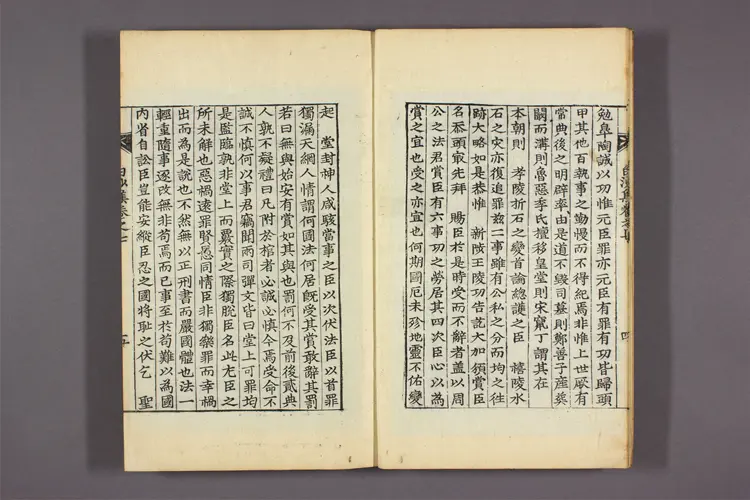 勉皐陶誠以功惟元臣罪亦元臣有罪有功皆歸頭
甲其他百執事之勤慢而不得紀焉非惟上世厥有
常典後之明辟率由是道不毀司墓則鄭善子産奚
闕而溝則魯惡季氏擅移皇堂則宋竄丁謂其在
本朝則 孝陵折石之變首論總護之臣 禧陵水
石之灾亦復追罪玆二事雖有公私之分而均之往
跡大略如是恭惟 新陵王陵功告訖大加湏賞臣
名忝頭最先拜 賜臣於是時受而不辭者盖以周
公之法君賞臣有六事功之勞居其四次臣心以為
賞之宜也受之亦宜也何期國厄未殄地靈不佑變
起 堂封神人咸駭當事之臣以次伏法臣以首罪
獨漏天網人情謂何國法何居旣受其賞敢辭其罰
若曰無與始安有賞如其與也罰何不及前後貳典
人孰不疑禮曰凡附於棺者必誠必愼今焉受命不
誠不愼何以事君竊聞兩司彈文皆曰堂上可罪均
是監臨孰非堂上而覈實之際獨脫臣名此尤臣之
所未解也惡禍遠罪賢愚同情臣非獨樂罪而幸禍
出而為是說也不然無以正刑書而嚴國體也法一
輕重隨事逐改無非苟焉而已事至於苟難以為國
內省自訟臣豈能安縱臣忍之國將耻之伏乞 聖
白沙集卷之七